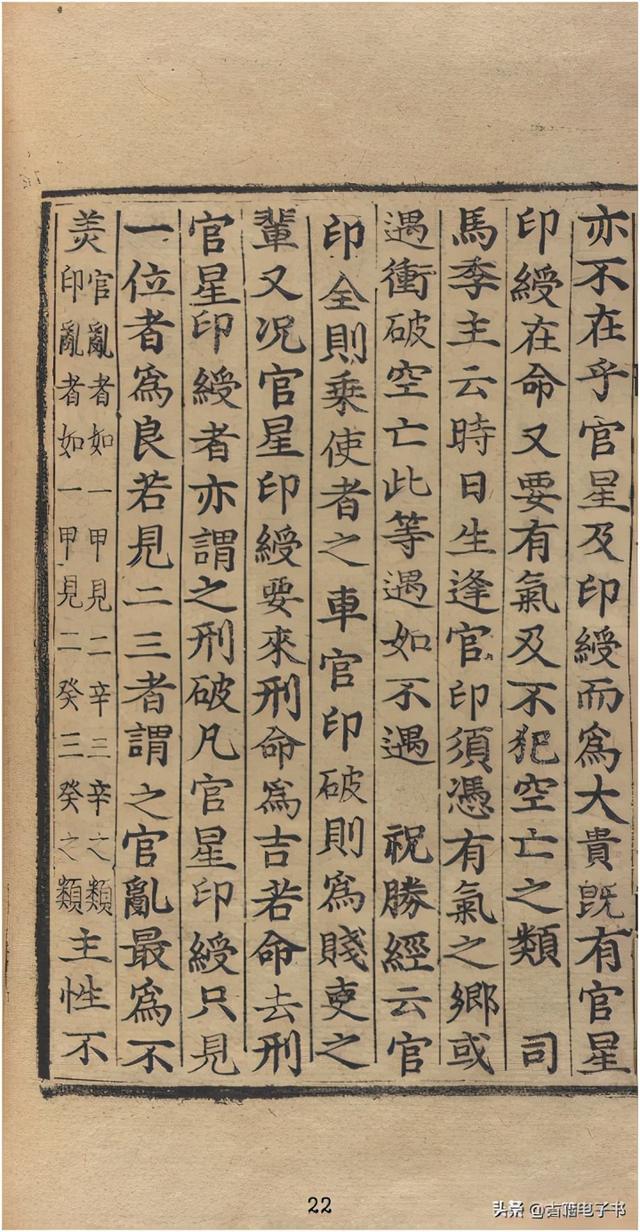 亦不在乎官星及印綬而為大貴既有官星
印綬在命又要有氣及不犯空亡之類　司
馬季主云時日生逢官印須憑有氣之鄉或
遇衝破空亡此等遇如不遇　祝勝經云官
印全則乗使者之車官印破則為賤吏之
輩又况官星印綬要來刑命為吉若命去刑
官星印綬者亦謂之刑破凡官星印綬只見
一位者為良若見二三者謂之官亂最為不
羙
官亂者如一甲見二辛三辛之類
印亂者如一甲見二癸三癸之類
主性不
22
头条 @古籍电子书